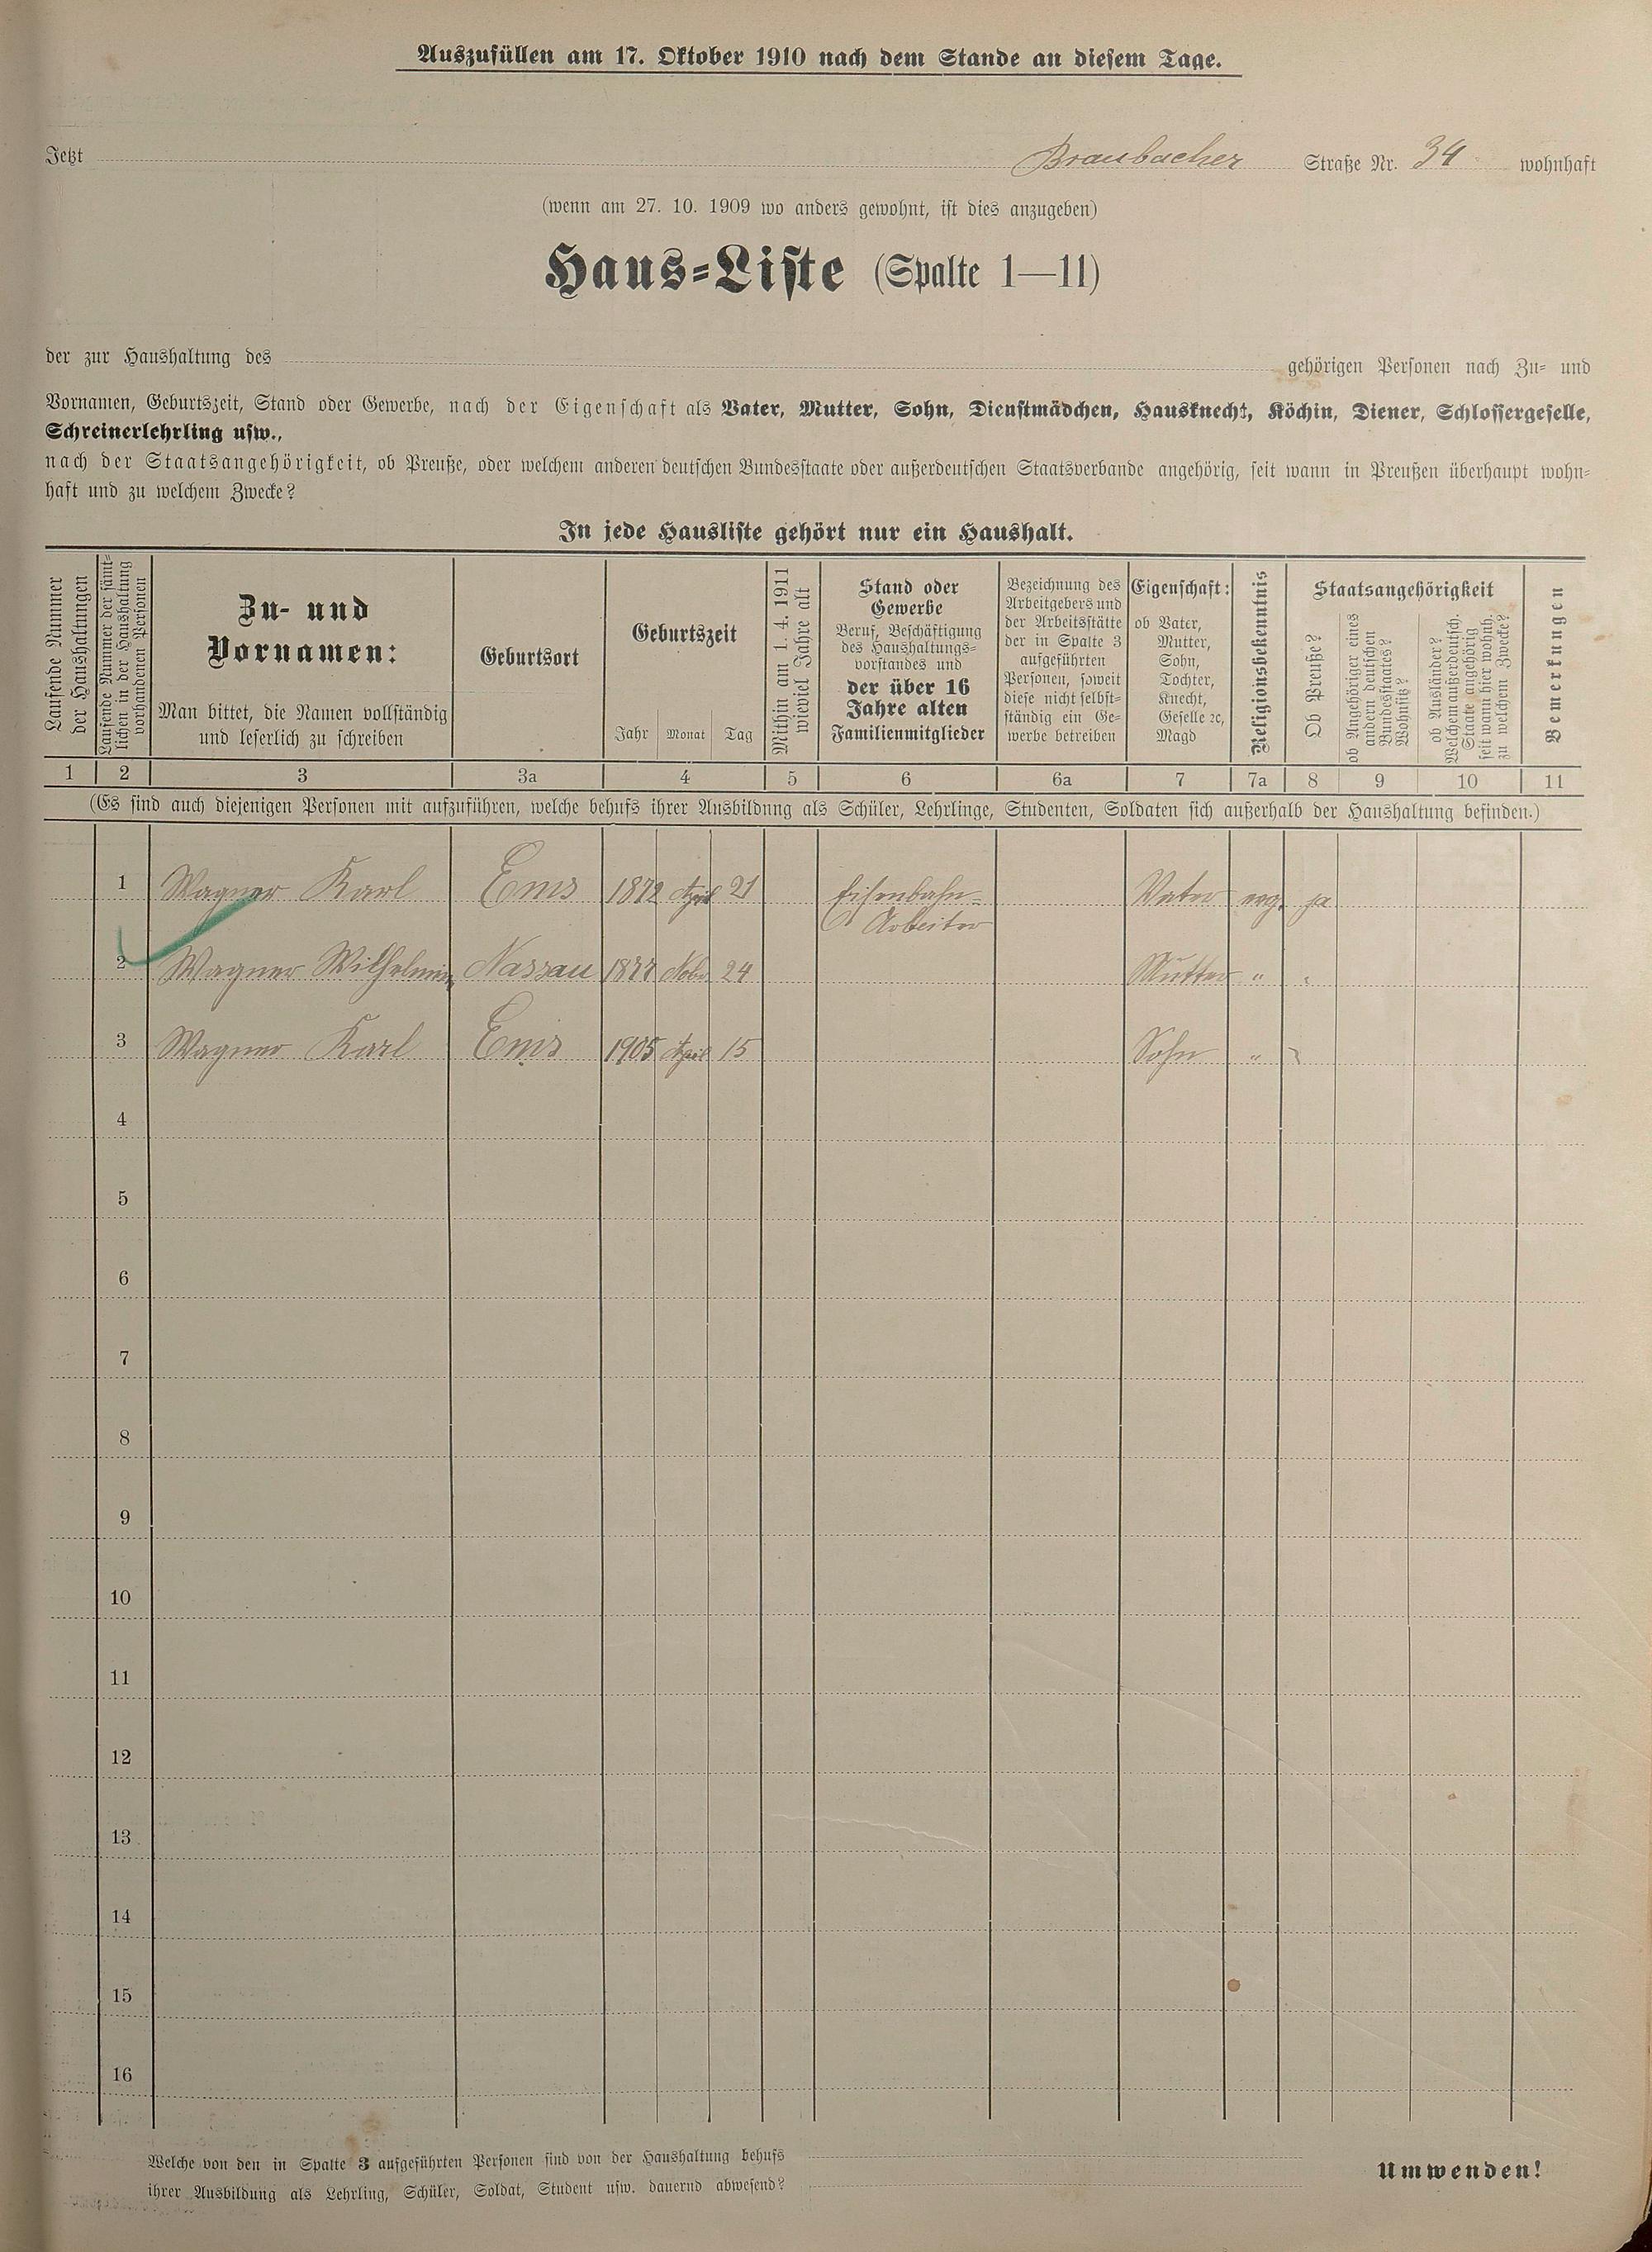 Auszufüllen am 17. Oktober 1910 nach dem Stande an diesem Tage.
Jetzt Braubacher Straße Nr. 34 wohnhaft
(wenn am 27. 10. 1909 wo anders gewohnt, ist dies anzugeben)
Haus-Liste (Spalte 1—11)
der zur Haushaltung des gehörigen Personen nach Zu- und
Vornamen, Geburtszeit, Stand oder Gewerbe, nach der Eigenschaft als Vater, Mutter, Sohn, Dienstmädchen, Hausknecht, Köchin, Diener, Schlossergeselle,
Schreinerlehrling usw.,
nach der Staatsangehörigkeit, ob Preuße, oder welchem anderen deutschen Bundesstaate oder außerdeutschen Staatsverbande angehörig, seit wann in Preußen überhaupt wohn-
haft und zu welchem Zwecke?
In jede Hausliste gehört nur ein Haushalt.
Laufende Nummer
der Haushaltungen
Laufende Nummer der sämt-
lichen in der Haushaltung
vorhandenen Personen
Zu- und
Vornamen:
Man bittet, die Namen vollständig
und leserlich zu schreiben
Geburtsort
Geburtszeit
Jahr Monat Tag
Mithin am 1. 4. 1911
wieviel Jahre alt
Stand oder
Gewerbe
Beruf, Beschäftigung
des Haushaltungs-
vorstandes und
der über 16
Jahre alten
Familienmitglieder
Bezeichnung des
Arbeitgebers und
der Arbeitsstätte
der in Spalte 3
aufgeführten
Personen, soweit
diese nicht selbst-
ständig ein Ge-
werbe betreiben
Eigenschaft:
ob Vater,
Mutter,
Sohn,
Tochter,
Knecht,
Geselle ꝛc,
Magd
Religionsbekenntnis
Staatsangehörigkeit
Ob Preuße?
ob Angehöriger eines
andern deutschen
Bundesstaates?
Wohnsitz?
ob Ausländer?
Welchem außerdeutsch.
Staate angehörig
seit wann hier wohnh.
zu welchem Zwecke?
Bemerkungen
1 2 3 3a 4 5 6 6a 7 7a 8 9 10 11
(Es sind auch diejenigen Personen mit aufzuführen, welche behufs ihrer Ausbildung als Schüler, Lehrlinge, Studenten, Soldaten sich außerhalb der Haushaltung befinden.)
1 Wagner Karl Ems 1872 April 21 Eisenbahn- Vater evg. ja
Arbeiter
2 Wagner Wilhelmine Nassau 1877 Nobr 24 Mutter " "
3 Wagner Karl Ems 1905 April 15 Sohn " "
4
5
6
7
8
9
10
11
12
13
14
15
16
Welche von den in Spalte 3 aufgeführten Personen sind von der Haushaltung behufs
ihrer Ausbildung als Lehrling, Schüler, Soldat, Student usw. dauernd abwesend?
Umwenden!